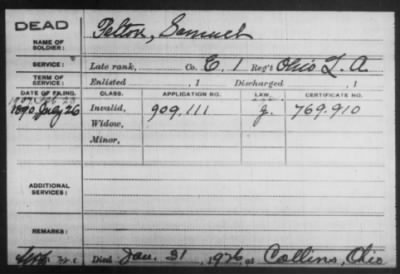 DEAD
NAME OF SOLDIER: Pelton, Samuel
SERVICE: Late rank, Co. C. 1 Reg't Ohio L. A.
TERM OF SERVICE: Enlisted , 1 Discharged , 1
DATE OF FILING. CLASS. APPLICATION NO. LAW. CERTIFICATE NO.
1890 July 26 Invalid, 909.111 g. 769.910
Widow,
Minor,
ADDITIONAL SERVICES:
REMARKS:
Died Jan. 31, 1926 at Collins, Ohio